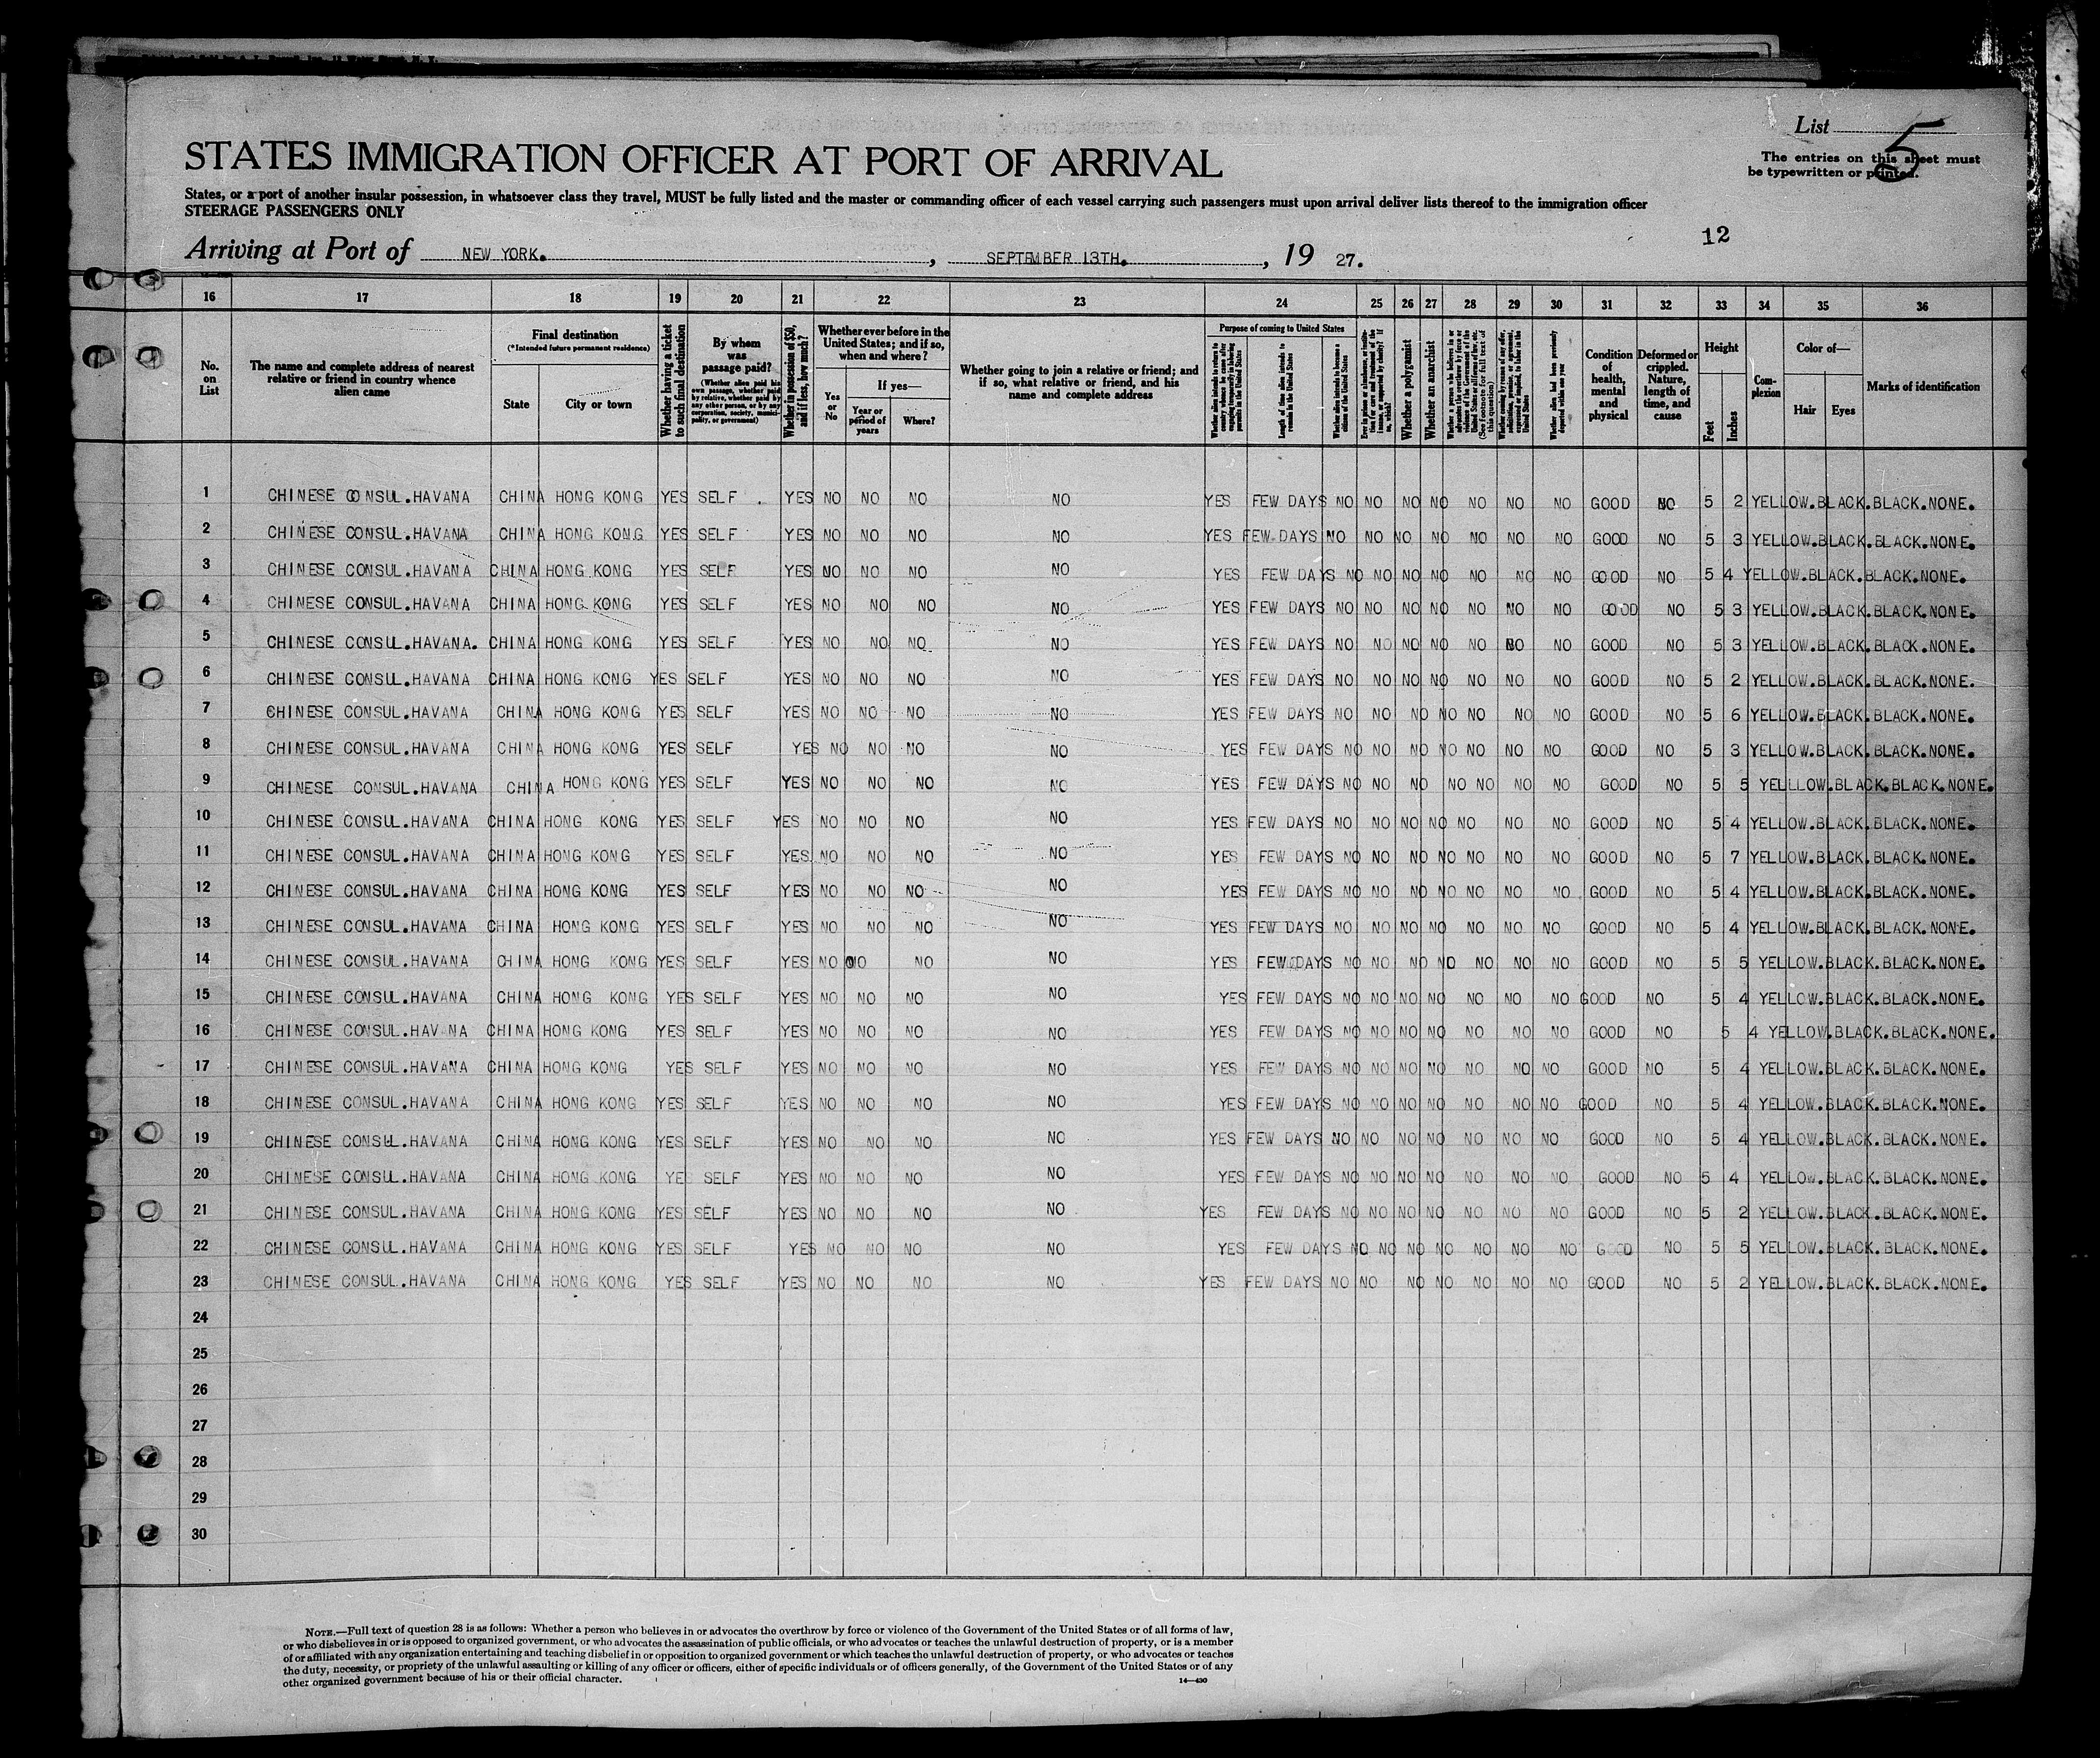 List 5
The entries on this sheet must
be typewritten or printed.
STATES IMMIGRATION OFFICER AT PORT OF ARRIVAL
States, or a port of another insular possession, in whatsoever class they travel, MUST be fully listed and the master or commanding officer of each vessel carrying such passengers must upon arrival deliver lists thereof to the immigration officer
STEERAGE PASSENGERS ONLY
12
Arriving at Port of NEW YORK. , SEPTEMBER 13TH. , 19 27.
16 17 18 19 20 21 22 23 24 25 26 27 28 29 30 31 32 33 34 35 36
No. on List
The name and complete address of nearest relative or friend in country whence alien came
Final destination
(*Intended future permanent residence)
State City or town
Whether having a ticket to such final destination
By whom was passage paid?
(Whether alien paid his own passage, whether paid by relative, whether paid by any other person, or by any corporation, society, municipality, or government)
Whether in possession of $50, and if less, how much?
Whether ever before in the United States; and if so, when and where?
Yes or No
If yes—
Year or period of years
Where?
Whether going to join a relative or friend; and if so, what relative or friend, and his name and complete address
Purpose of coming to United States
Length of time alien intends to remain in the United States
Whether alien intends to become a citizen of the United States
Whether a polygamist
Whether an anarchist
Condition of health, mental and physical
Deformed or crippled. Nature, length of time, and cause
Height
Feet Inches
Complexion
Color of—
Hair Eyes
Marks of identification
1 CHINESE CONSUL.HAVANA CHINA HONG KONG YES SELF . YES NO NO NO NO YES FEW DAYS NO NO NO NO NO NO NO GOOD NO 5 2 YELLOW.BLACK.BLACK.NONE.
2 CHINESE CONSUL.HAVANA CHINA HONG KONG YES SELF YES NO NO NO NO YES FEW DAYS NO NO NO NO NO NO NO GOOD NO 5 3 YELLOW.BLACK.BLACK.NONE.
3 CHINESE CONSUL.HAVANA CHINA HONG KONG YES SELF YES NO NO NO NO YES FEW DAYS NO NO NO NO NO NO NO GOOD NO 5 4 YELLOW.BLACK.BLACK.NONE.
4 CHINESE CONSUL.HAVANA CHINA HONG KONG YES SELF YES NO NO NO NO YES FEW DAYS NO NO NO NO NO NO NO GOOD NO 5 3 YELLOW.BLACK.BLACK.NONE.
5 CHINESE CONSUL.HAVANA. CHINA HONG KONG YES SELF YES NO NO NO NO YES FEW DAYS NO NO NO NO NO NO NO GOOD NO 5 3 YELLOW.BLACK.BLACK.NONE.
6 CHINESE CONSUL.HAVANA CHINA HONG KONG YES SELF YES NO NO NO NO YES FEW DAYS NO NO NO NO NO NO NO GOOD NO 5 2 YELLOW.BLACK.BLACK.NONE.
7 CHINESE CONSUL.HAVANA CHINA HONG KONG YES SELF YES NO NO NO NO YES FEW DAYS NO NO NO NO NO NO NO GOOD NO 5 6 YELLOW.BLACK.BLACK.NONE.
8 CHINESE CONSUL.HAVANA CHINA HONG KONG YES SELF YES NO NO NO NO YES FEW DAYS NO NO NO NO NO NO NO GOOD NO 5 3 YELLOW.BLACK.BLACK.NONE.
9 CHINESE CONSUL.HAVANA CHINA HONG KONG YES SELF YES NO NO NO NO YES FEW DAYS NO NO NO NO NO NO NO GOOD NO 5 5 YELLLOW.BLACK.BLACK.NONE.
10 CHINESE CONSUL.HAVANA CHINA HONG KONG YES SELF YES NO NO NO NO YES FEW DAYS NO NO NO NO NO NO NO GOOD NO 5 4 YELLOW.BLACK.BLACK.NONE.
11 CHINESE CONSUL.HAVANA CHINA HONG KONG YES SELF YES NO NO NO NO YES FEW DAYS NO NO NO NO NO NO NO GOOD NO 5 7 YELLOW.BLACK.BLACK.NONE.
12 CHINESE CONSUL.HAVANA CHINA HONG KONG YES SELF YES NO NO NO NO YES FEW DAYS NO NO NO NO NO NO NO GOOD NO 5 4 YELLOW.BLACK.BLACK.NONE.
13 CHINESE CONSUL.HAVANA CHINA HONG KONG YES SELF YES NO NO NO NO YES FEW DAYS NO NO NO NO NO NO NO GOOD NO 5 4 YELLOW.BLACK.BLACK.NONE.
14 CHINESE CONSUL.HAVANA CHINA HONG KONG YES SELF YES NO NO NO NO YES FEW DAYS NO NO NO NO NO NO NO GOOD NO 5 5 YELLOW.BLACK.BLACK.NONE.
15 CHINESE CONSUL.HAVANA CHINA HONG KONG YES SELF YES NO NO NO NO YES FEW DAYS NO NO NO NO NO NO NO GOOD NO 5 4 YELLOW.BLACK.BLACK.NONE.
16 CHINESE CONSUL.HAVANA CHINA HONG KONG YES SELF YES NO NO NO NO YES FEW DAYS NO NO NO NO NO NO NO GOOD NO 5 4 YELLOW.BLACK.BLACK.NONE.
17 CHINESE CONSUL.HAVANA CHINA HONG KONG YES SELF YES NO NO NO NO YES FEW DAYS NO NO NO NO NO NO NO GOOD NO 5 4 YELLOW.BLACK.BLACK.NONE.
18 CHINESE CONSUL.HAVANA CHINA HONG KONG YES SELF YES NO NO NO NO YES FEW DAYS NO NO NO NO NO NO NO GOOD NO 5 4 YELLOW.BLACK.BLACK.NONE.
19 CHINESE CONSUL.HAVANA CHINA HONG KONG YES SELF YES NO NO NO NO YES FEW DAYS NO NO NO NO NO NO NO GOOD NO 5 4 YELLOW.BLACK.BLACK.NONE.
20 CHINESE CONSUL.HAVANA CHINA HONG KONG YES SELF YES NO NO NO NO YES FEW DAYS NO NO NO NO NO NO NO GOOD NO 5 4 YELLOW.BLACK.BLACK.NONE.
21 CHINESE CONSUL.HAVANA CHINA HONG KONG YES SELF YES NO NO NO NO YES FEW DAYS NO NO NO NO NO NO NO GOOD NO 5 2 YELLOW.BLACK.BLACK.NONE.
22 CHINESE CONSUL.HAVANA CHINA HONG KONG YES SELF YES NO NO NO NO YES FEW DAYS NO NO NO NO NO NO NO GOOD NO 5 5 YELLOW.BLACK.BLACK.NONE.
23 CHINESE CONSUL.HAVANA CHINA HONG KONG YES SELF YES NO NO NO NO YES FEW DAYS NO NO NO NO NO NO NO GOOD NO 5 2 YELLOW.BLACK.BLACK.NONE.
24
25
26
27
28
29
30
NOTE.—Full text of question 28 is as follows: Whether a person who believes in or advocates the overthrow by force or violence of the Government of the United States or of all forms of law,
or who disbelieves in or is opposed to organized government, or who advocates the assassination of public officials, or who advocates or teaches the unlawful destruction of property, or is a member
of or affiliated with any organization entertaining and teaching disbelief in or opposition to organized government or which teaches the unlawful destruction of property, or who advocates or teaches
the duty, necessity, or propriety of the unlawful assaulting or killing of any officer or officers, either of specific individuals or of officers generally, of the Government of the United States or of any
other organized government because of his or their official character.
14—430